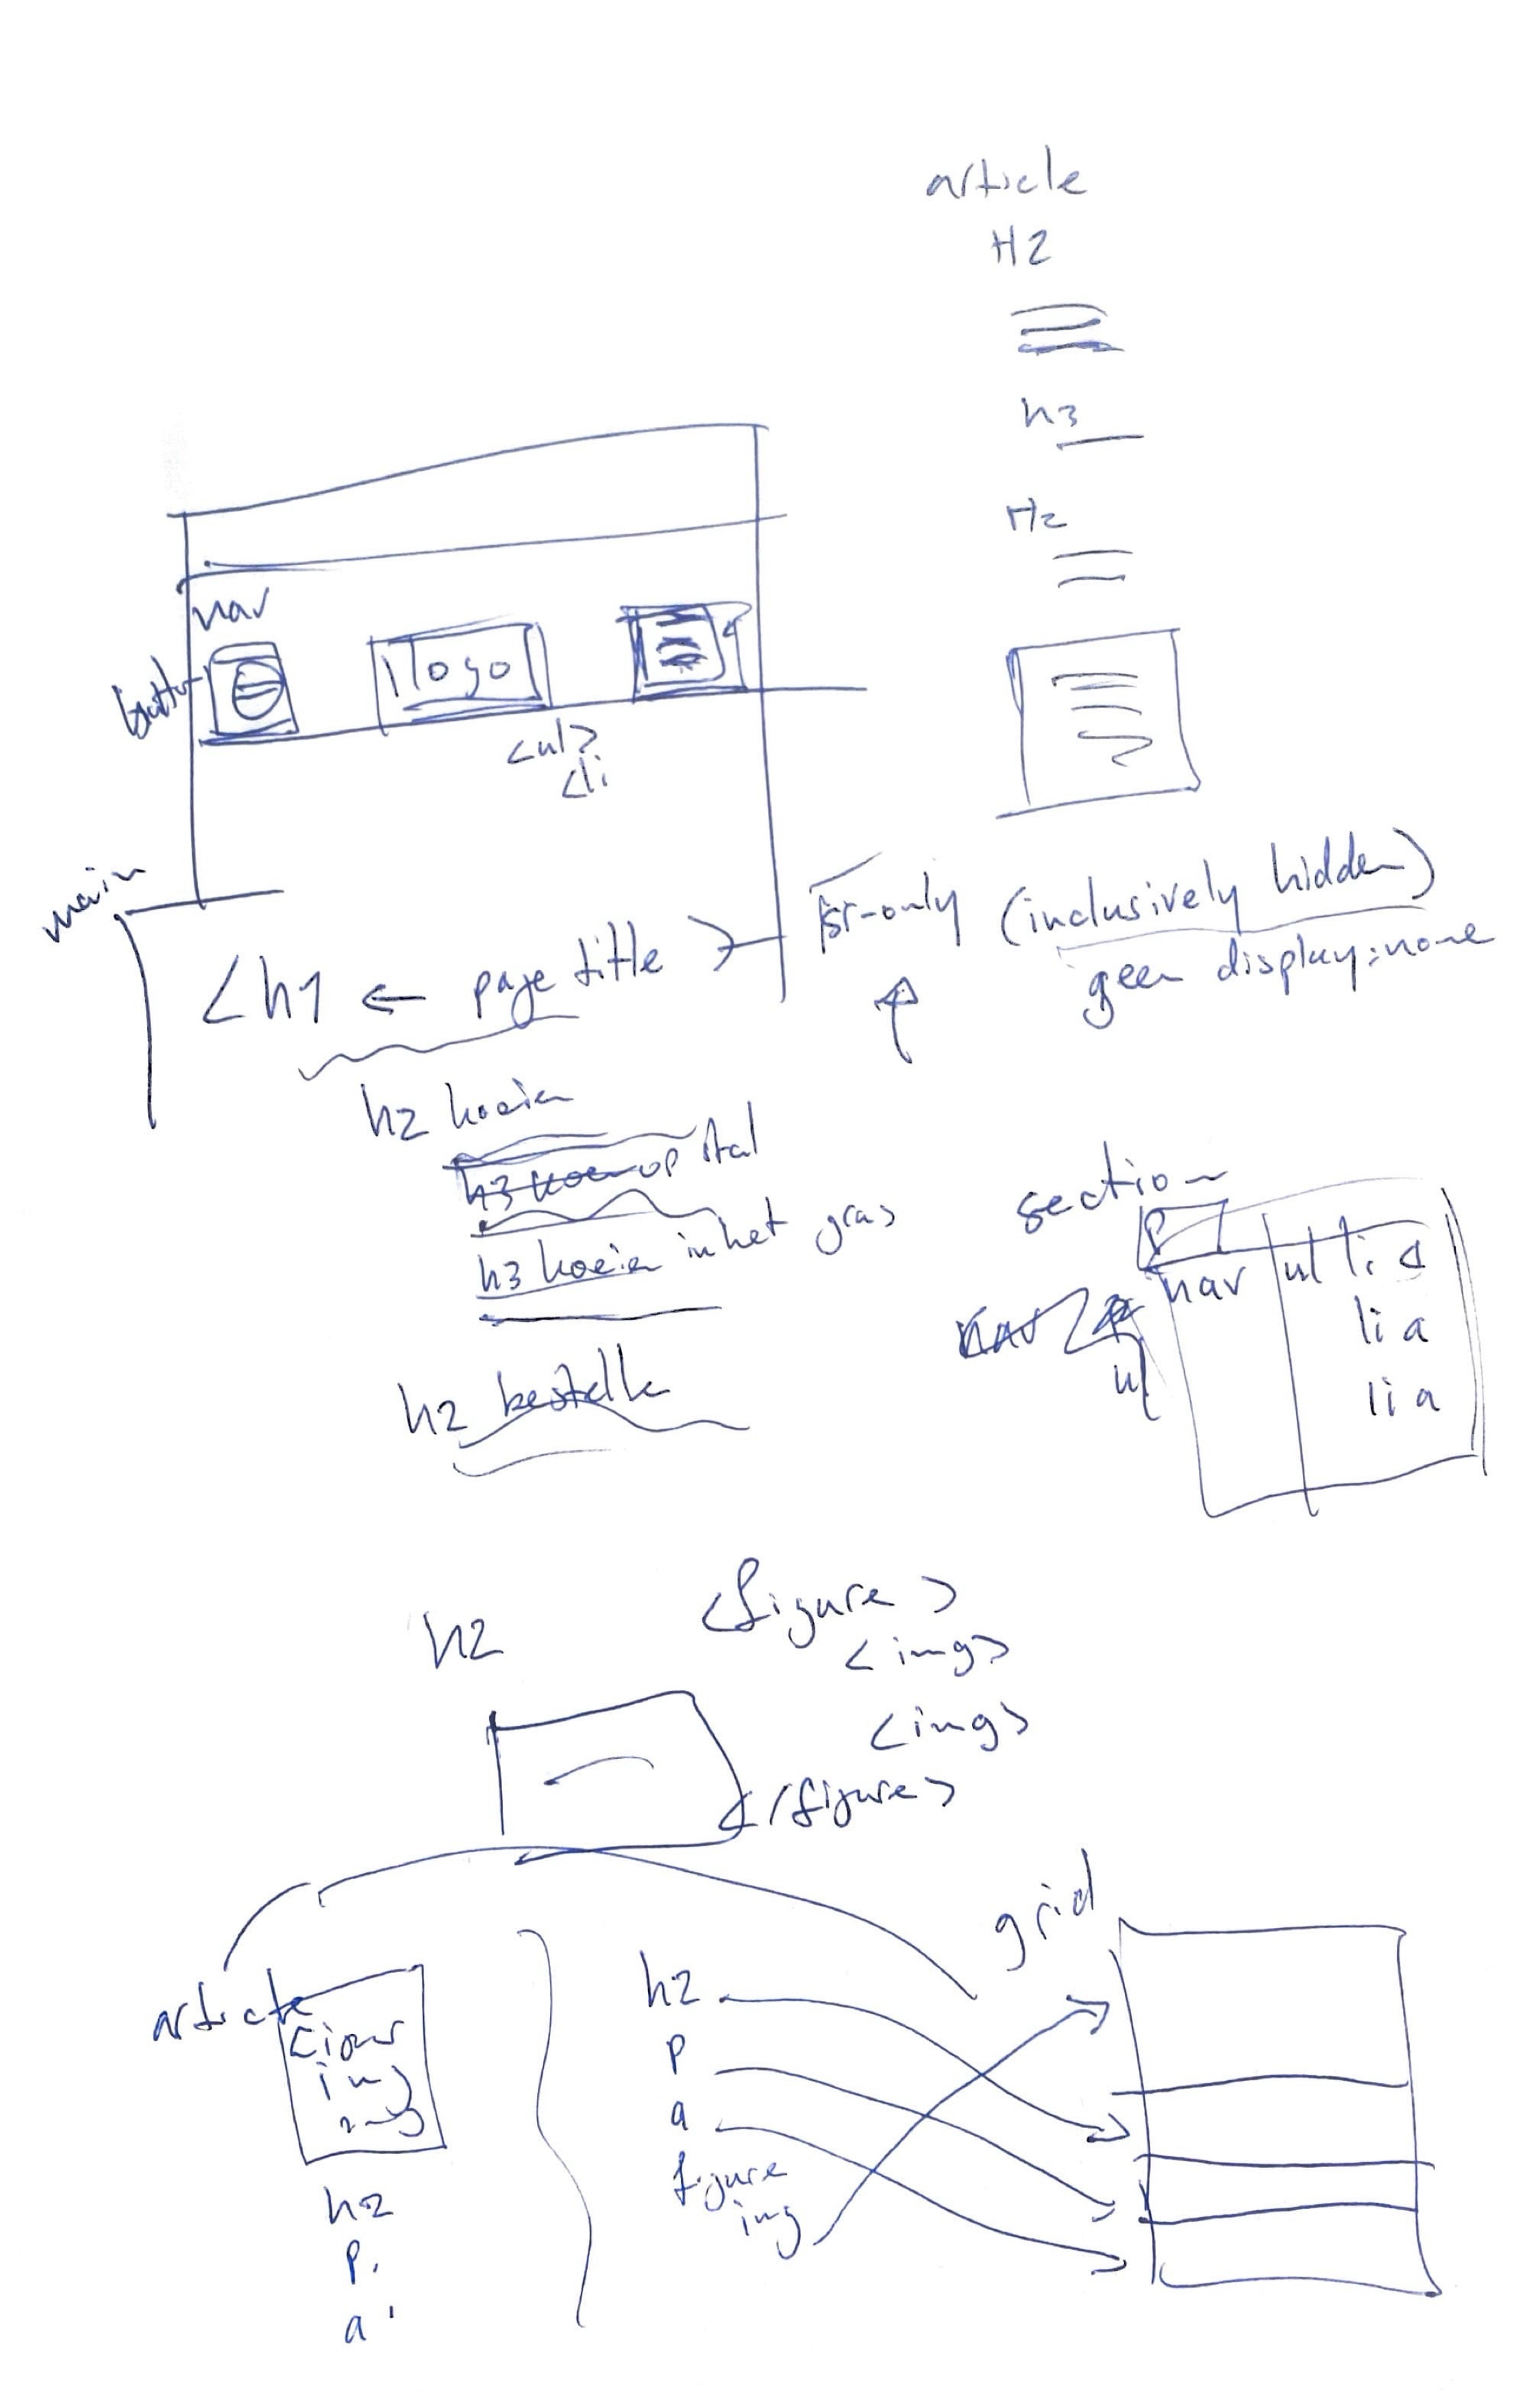 article
H2
h3
H2
nav
button
logo
<ul>
<li
main
<h1 ← page title >
sr-only (inclusively hidden)
geen display:none
h2 koeien
h3 koe op stal
h3 koeien in het gras
h2 bestelle
section
P
nav
ul li a
li a
li a
nav
ul
h2
<figure>
<img>
<img>
</figure>
grid
article
img
h2
p
a
h2
p
a
figure
img